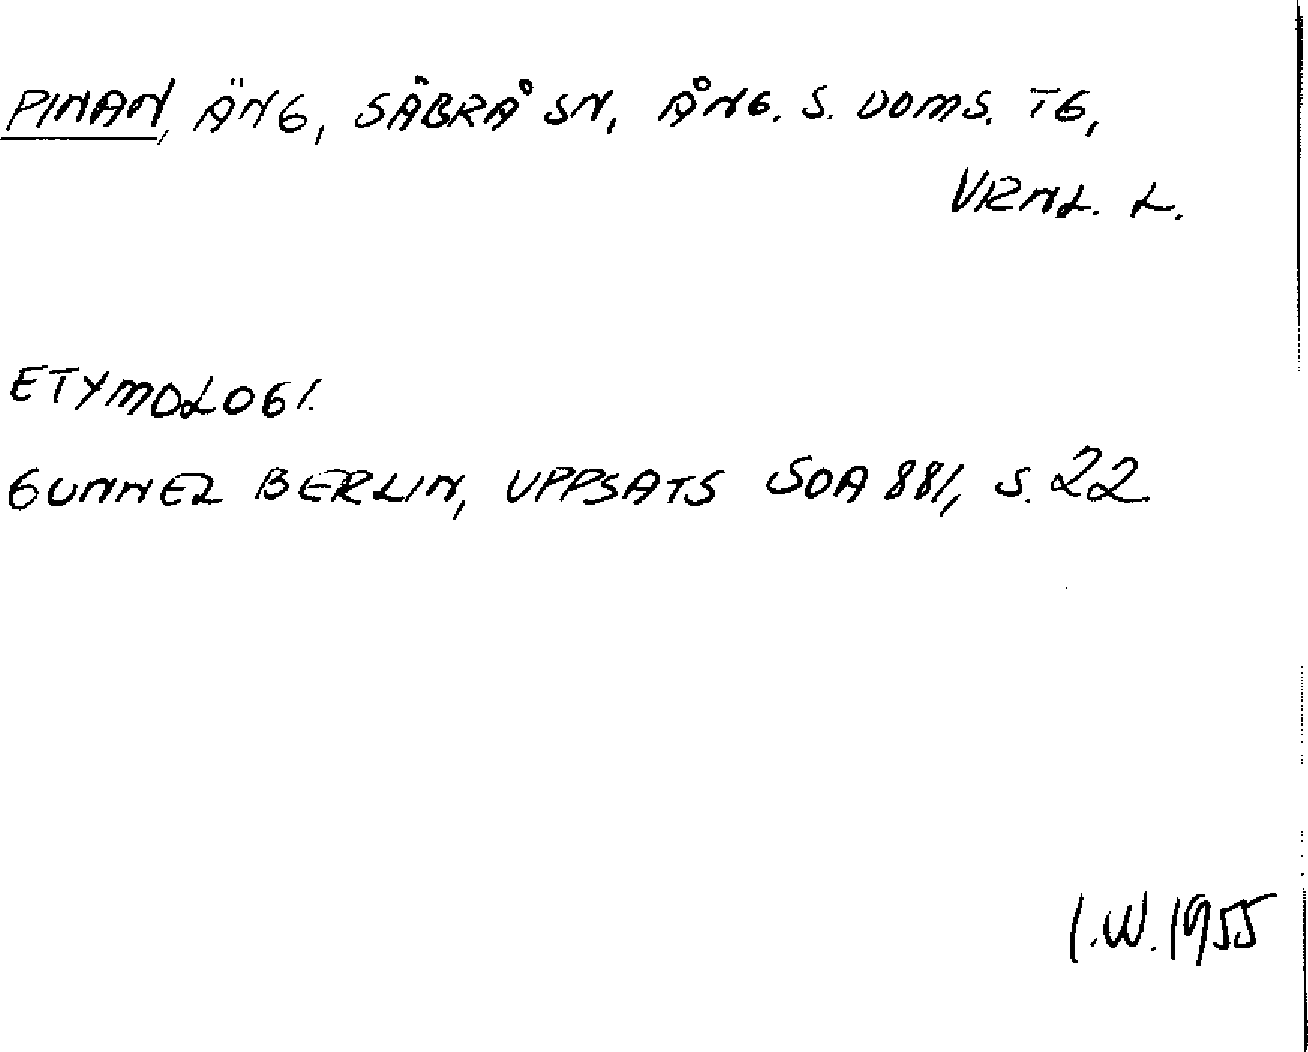 PINAN, ÄNG, SÄBRÅ SN, ÅNG. S. DOMS. TG,
VRNL. L.
ETYMOLOGI.
GUNNEL BERLIN, UPPSATS SOA 881, S. 22.
I.W. 1955